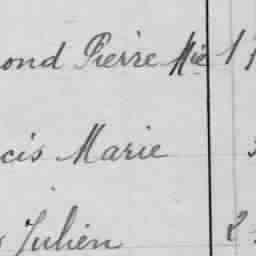 ond Pierre Mie 1
cis Marie
Julien 2